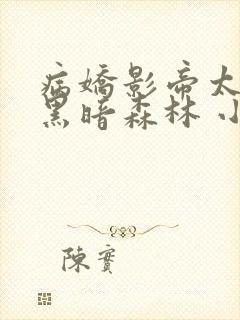 病嬌影帝太
黑暗森林 小
陳實